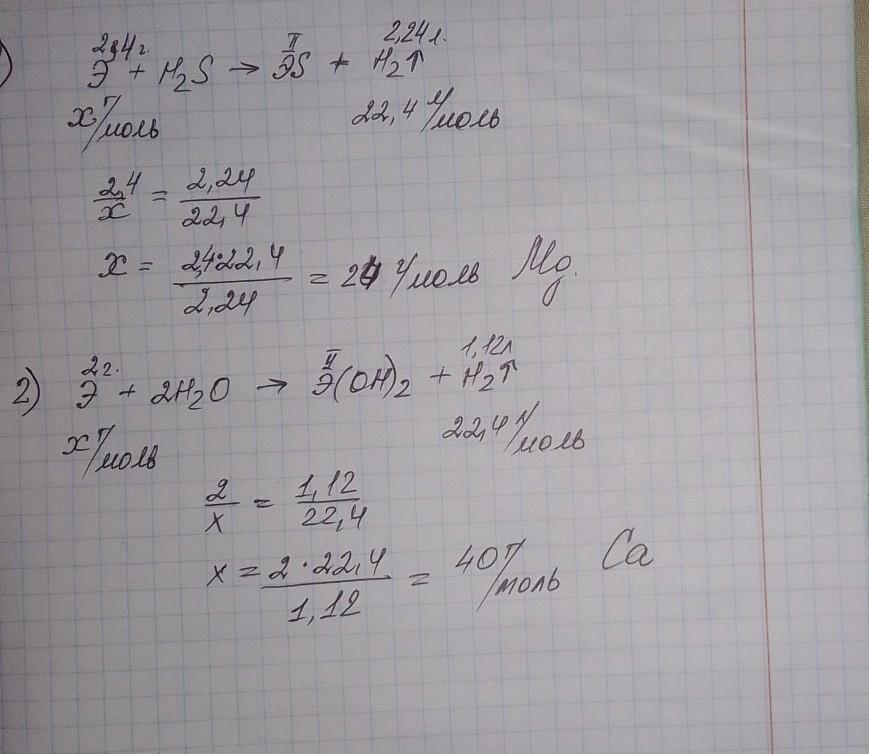 ) 2,4 г. 2,24 л.
Э + H₂S → ЭS (II) + H₂↑
x г/моль 22,4 л/моль
2,4/x = 2,24/22,4
x = 2,4·22,4/2,24 = 24 г/моль Mg.
2 г. 1,12 л
2) Э + 2H₂O → Э(OH)₂ (II) + H₂↑
x г/моль 22,4 л/моль
2/x = 1,12/22,4
x = 2·22,4/1,12 = 40 г/моль Ca